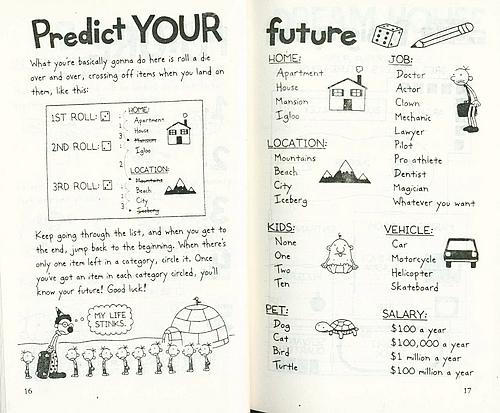 Predict YOUR
What you're basically gonna do here is roll a die
over and over, crossing off items when you land on
them, like this:
1ST ROLL:
2ND ROLL:
3RD ROLL:
HOME:
Apartment
1 House
3 Mansion
Igloo
2
LOCATION:
Mountains
1 Beach
2 City
3 Iceberg
Keep going through the list, and when you get to
the end, jump back to the beginning. When there's
only one item left in a category, circle it. Once
you've got an item in each category circled, you'll
know your future! Good luck!
MY LIFE
STINKS.
16
future
HOME:
Apartment
House
Mansion
Igloo
LOCATION:
Mountains
Beach
City
Iceberg
KIDS:
None
One
Two
Ten
PET:
Dog
Cat
Bird
Turtle
JOB:
Doctor
Actor
Clown
Mechanic
Lawyer
Pilot
Pro athlete
Dentist
Magician
Whatever you want
VEHICLE:
Car
Motorcycle
Helicopter
Skateboard
SALARY:
$100 a year
$100,000 a year
$1 million a year
$100 million a year
17